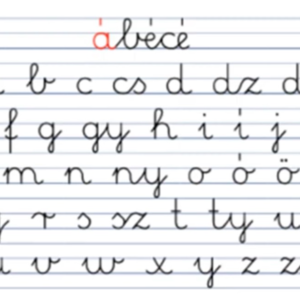 ábécé
b c cs d dz d
f g gy h i í j
m n ny o ó ö
r s sz t ty u
v w x y z z